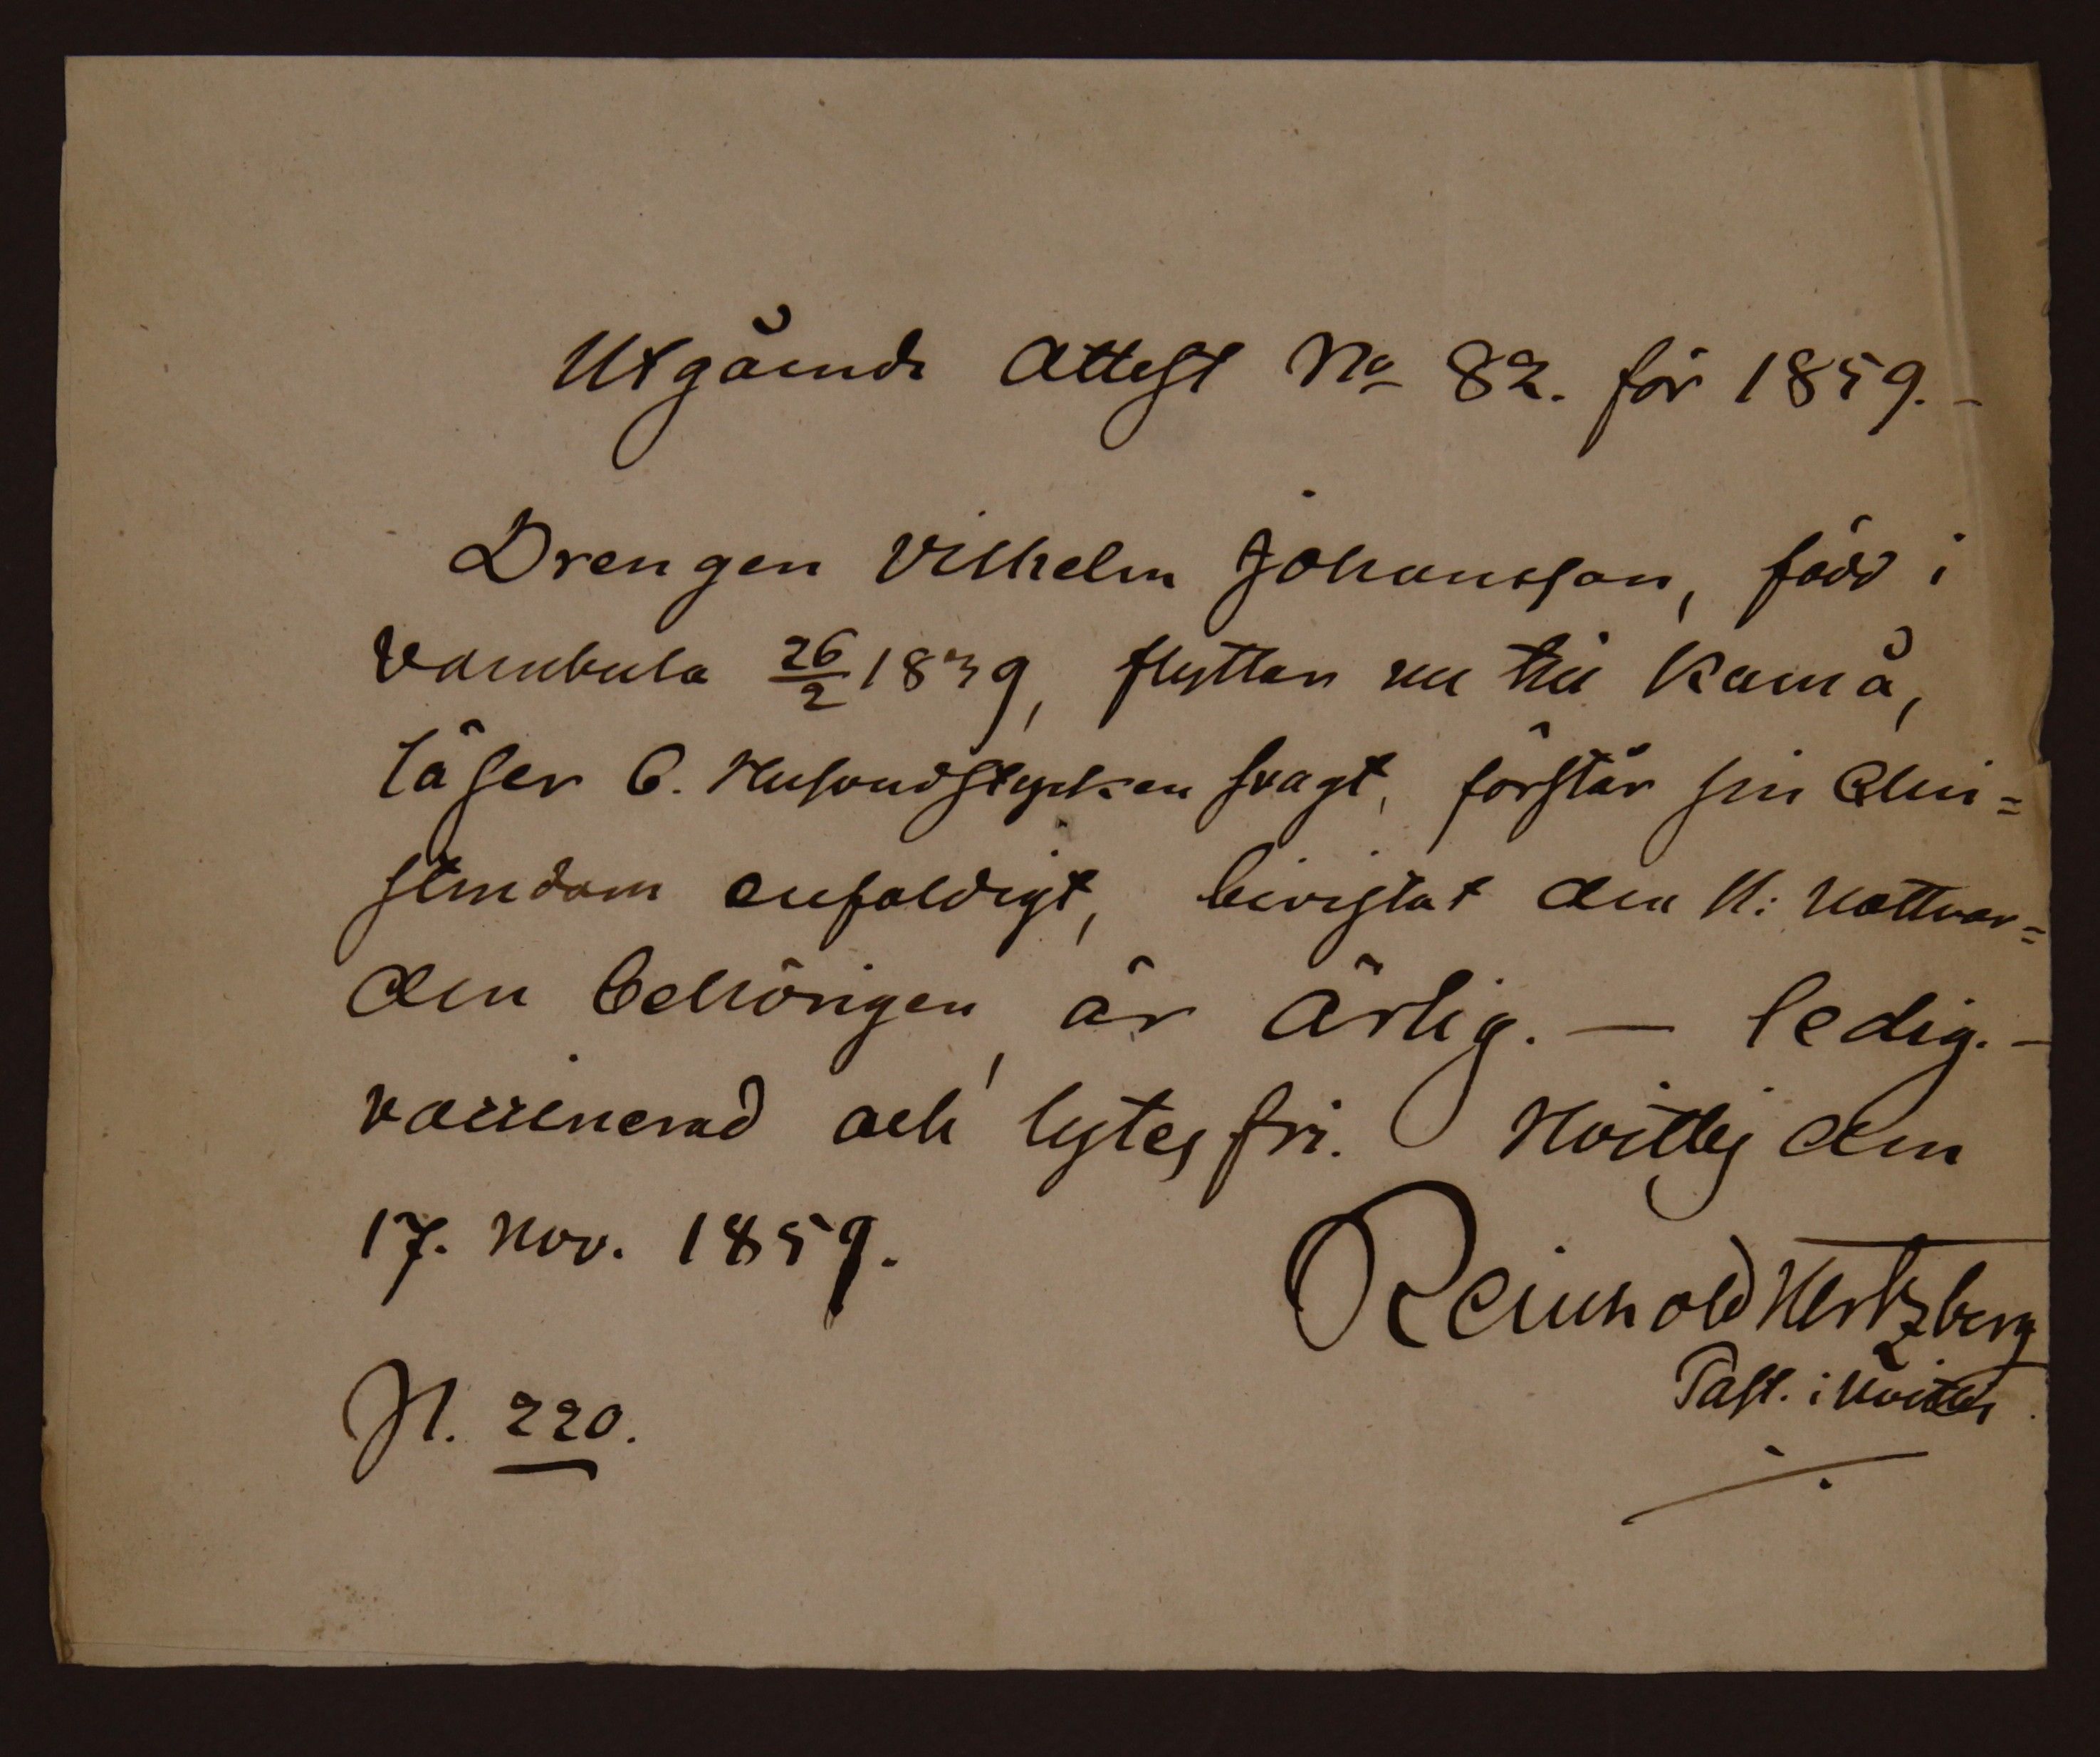 Utgående Attest No 82. för 1859. -
Drengen Vilhelm Johansson, född i
Vambula 26/2 1839, flyttar nu till Kumå,
läser C. Hufvudstycken svagt, förstår sin Chri=
stendom enfaldigt, bivistat den H: Nattvar=
den behörigen, är ärlig. — ledig. —
vaccinerad och lytesfri. Hvittis den
17. Nov. 1859.
Reinhold Hertzberg
Past. i Hvittis.
N. 220.